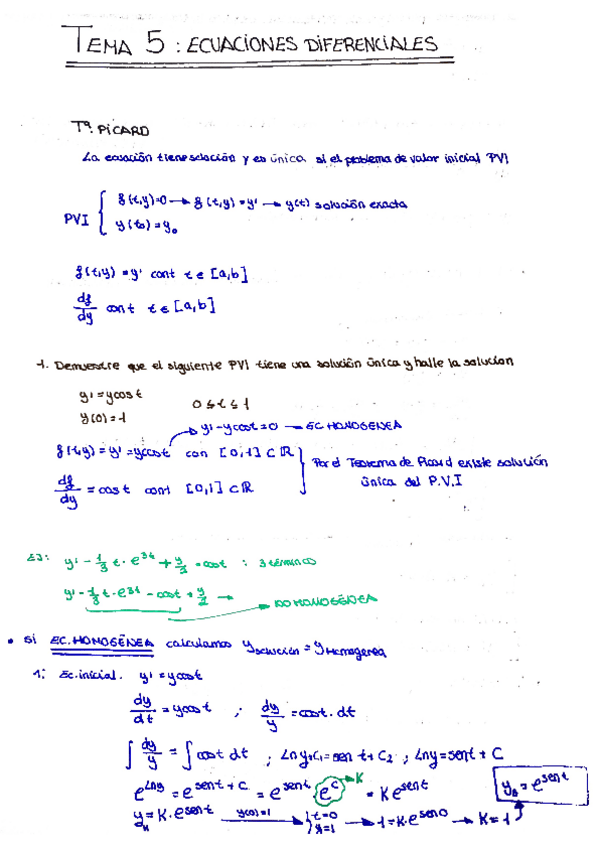 TEMA 5 : ECUACIONES DIFERENCIALES
Tª. PICARD
La ecuación tiene solución y es única si el problema de valor inicial PVI
PVI { f(t,y)=0 → f(t,y) = y' → y(t) solución exacta
y(t₀) = y₀
f(t,y) = y' cont t ∈ [a,b]
df/dy cont t ∈ [a,b]
1. Demuestre que el siguiente PVI tiene una solución única y halle la solución
y' = y cos t
0 ≤ t ≤ 1
y(0) = 1
y' - y cos t = 0 → EC HOMOGENEA
f(t,y) = y' = y cos t con [0,1] ⊂ ℝ
df/dy = cos t cont [0,1] ⊂ ℝ
Por el Teorema de Picard existe solución
única del P.V.I
EJ: y' - 1/3 t · e^3t + y/2 = cos t : 3 término
y' - 1/3 t · e^3t - cos t + y/2 →
→ NO HOMOGÉNEA
• Si EC. HOMOGÉNEA calculamos y solución = y Homogenea
1: Ec. inicial. y' = y cos t
dy/dt = y cos t ; dy/y = cos t · dt
∫ dy/y = ∫ cos t dt ; Ln y + C₁ = sen t + C₂ ; Ln y = sen t + C
e^Lny = e^sen t + C = e^sen t · e^C → K = K e^sen t
y = K · e^sen t y(0)=1 → { t=0 y=1 → 1 = K · e^sen 0 → K = 1